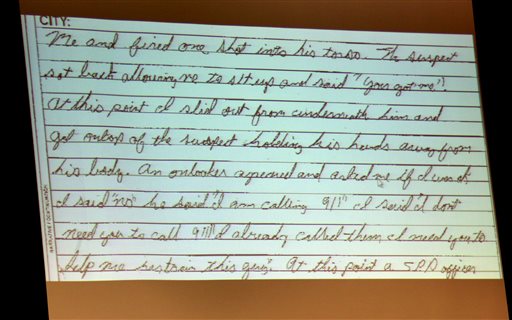 CITY:
Me and fired one shot into his torso. The suspect
sat back allowing me to sit up and said "You got me".
At this point I slid out from underneath him and
got ontop of the suspect holding his hands away from
his body. An onlooker appeared and asked me if I was ok
I said "no" he said "I am calling 911" I said "I don't
need you to call 911 I already called them, I need you to
help me restrain this guy". At this point a S.P.D officer